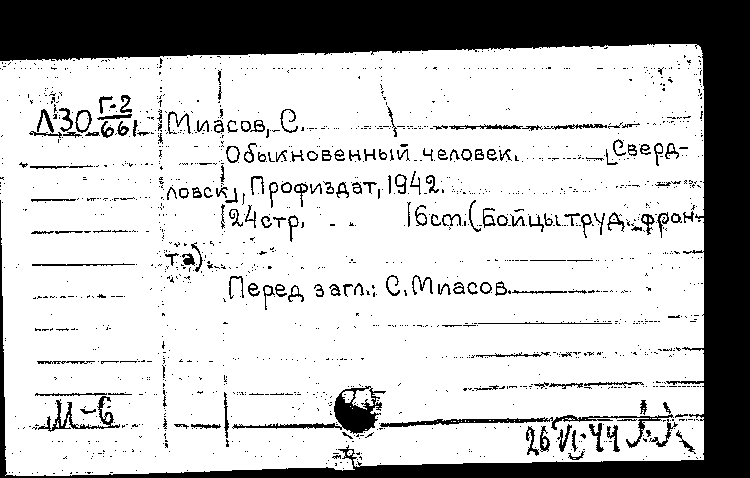 Л30 Г-2/661 Миасов, С.
Обыкновенный человек. [Сверд-
ловск], Профиздат, 1942.
24 стр. 16 cm. (Бойцы труд. фрон-
та).
Перед загл.: С. Миасов.
М-6
26 VI 44